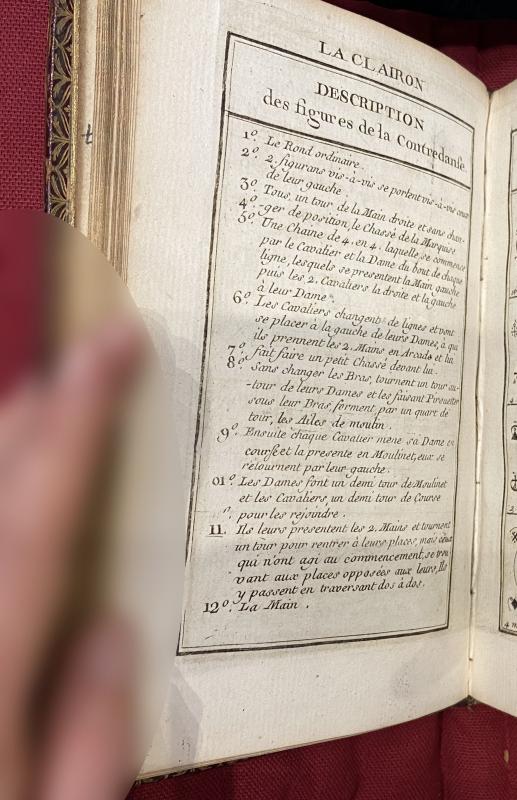 LA CLAIRON
DESCRIPTION
des figures de la Contredanse
1º. Le Rond ordinaire.
2º. 2. figurans vis-à-vis se portent vis-à-vis ceux
de leur gauche.
3º. Tous, un tour de la Main droite et sans chan-
4º. -ger de position, le Chassé de la Marquise.
5º. Une Chaine de 4, en 4, laquelle se commence
par le Cavalier et la Dame du bout de chaque
ligne, lesquels se presentent la Main gauche
puis les 2. Cavaliers la droite et la gauche
à leur Dame.
6º. Les Cavaliers changent de lignes et vont
se placer à la gauche de leurs Dames, à qui
ils prennent les 2. Mains en Arcade et lui
7º. fait faire un petit Chassé devant lui.
8º. Sans changer les Bras, tournent un tour au-
-tour de leurs Dames et les faisant Pirouetter
sous leur Bras, forment par un quart de
tour, les Ailes de moulin.
9º. Ensuite chaque Cavalier mene sa Dame en
course et la presente en Moulinet, eux se
retournent par leur gauche.
01º. Les Dames font un demi tour de Moulinet
et les Cavaliers, un demi tour de Course
pour les rejoindre.
11º. Ils leurs presentent les 2. Mains et tournent
un tour pour rentrer à leurs places, mais ceux
qui n'ont agi au commencement, se trou-
vant aux places opposées aux leurs, Ils
y passent en traversant dos à dos.
12º. La Main.